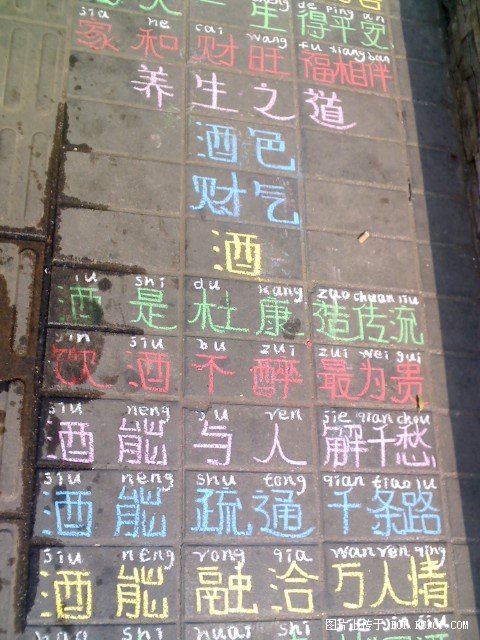 生
de ping an
得平安
jia he cai wang fu xiang ban
家和财旺福相伴
养生之道
酒色
财气
酒
jiu shi du kang zao chuan liu
酒是杜康造传流
yin jiu bu zui zui wei gui
饮酒不醉最为贵
jiu neng yu ren jie qian chou
酒能与人解千愁
jiu neng shu tong qian tiao lu
酒能疏通千条路
jiu neng rong qia wan ren qing
酒能融洽万人情